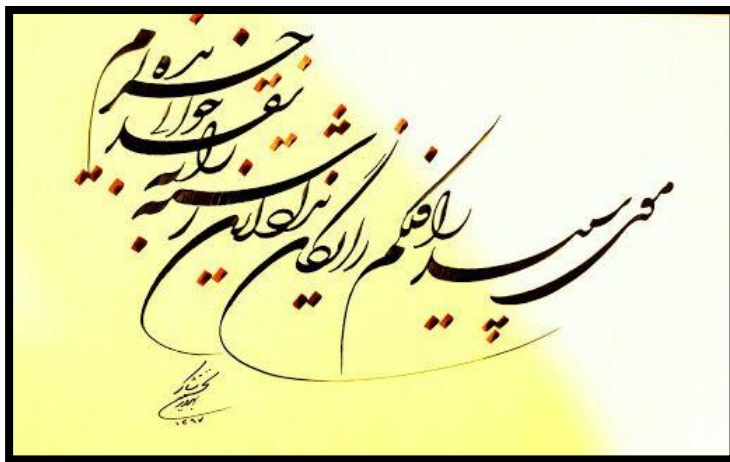 موی سپید را فلکم رایگان نداد
این رشته را به نقد جوانی خریده‌ام
۱۳۹۷